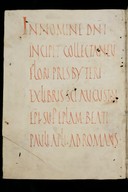 IN NOMINE DNI
INCIPIT COLLECTANEU
FLORI PRESBYTERI
EX LIBRIS SCI AUGUSTINI
EPI SUP EPLAM BEATI
PAULI APLI AD ROMANOS